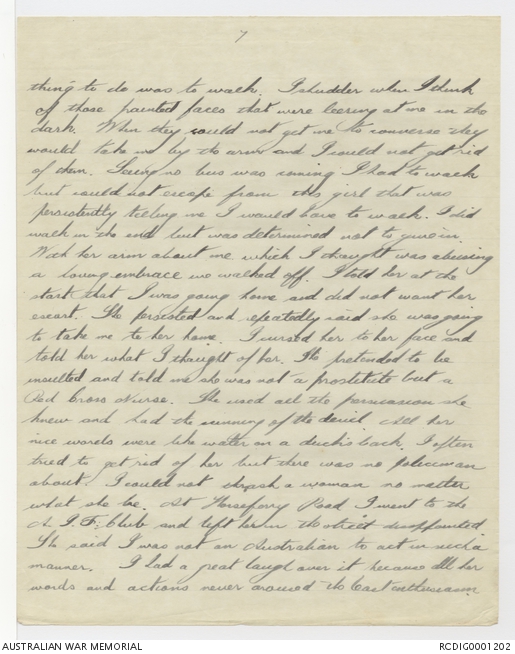 7
thing to do was to walk. I shudder when I think
of those painted faces that were leering at me in the
dark. When they could not get me to converse they
would take me by the arm and I could not get rid
of them. Seeing no bus was coming I had to walk
but could not escape from this girl that was
persistently telling me I would have to walk. I did
walk in the end but was determined not to give in.
With her arm about me which I thought was abusing
a loving embrace we walked off. I told her at the
start that I was going home and did not want her
escort. She persisted and repeatedly said she was going
to take me to her home. I cursed her to her face and
told her what I thought of her. She pretended to be
insulted and told me she was not a prostitute but a
Red Cross Nurse. She used all the persuasion she
knew and had the cunning of the devil. All her
nice words were like water on a duck's back. I often
tried to get rid of her but there was no policeman
about. I could not thrash a woman no matter
what she be. At Horseferry Road I went to the
A.I.F. Club and left her in the street disappointed.
She said I was not an Australian to act in such a
manner. I had a great laugh over it because all her
words and actions never aroused the least enthusiasm.
AUSTRALIAN WAR MEMORIAL
RCDIG0001202